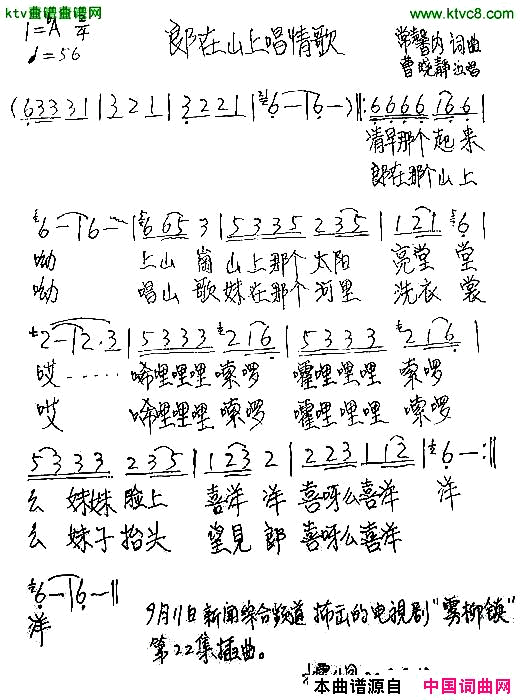 ktv曲谱曲谱网 www.ktvc8.com
1=A 2/4
♩=56
郎在山上唱情歌
常馨内 词曲
曹晓静 演唱
(63331|321|3221|6—|6—)‖:6666 166|
清早那个起来
郎在那个山上
6—|6—|665 3|5335 235|121 6|
呦 上山岗山上那个太阳 亮堂堂
呦 唱山歌妹在那个河里 洗衣裳
2—|2·3|5333 216|5333 216|
哎······唏哩哩哩嗦啰 嚯哩哩哩 嗦啰
哎 唏哩哩哩嗦啰 嚯哩哩哩 嗦啰
5333 235|123 2|223 112|6—:‖
么妹妹脸上 喜洋洋喜呀么喜洋 洋
么妹子抬头 望见郎喜呀么喜洋
6—|6—‖
洋
9月11日新闻综合频道播出的电视剧"雾柳镇"
第22集插曲。
本曲谱源自 中国词曲网